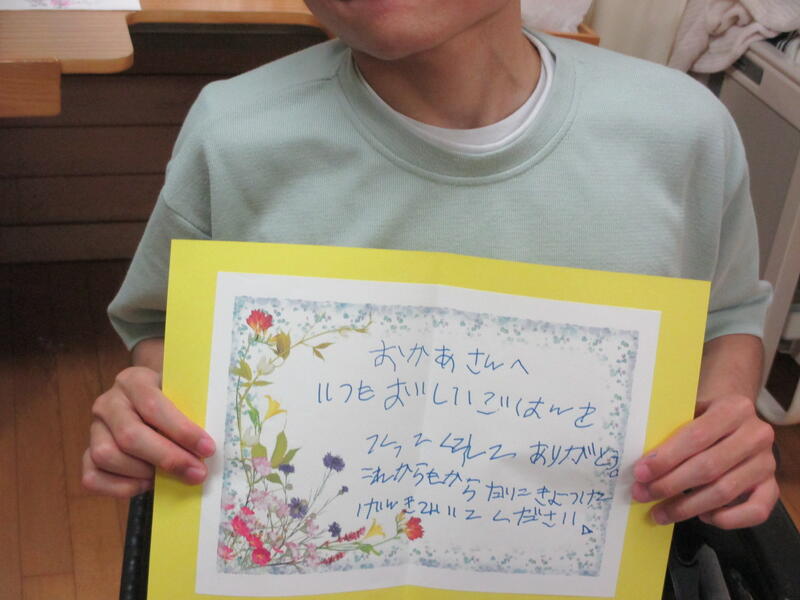 おかあさんへ
いつもおいしいごはんを
つくってくれて ありがとう。
これからもからだにきよつけて
げんきでいてください。